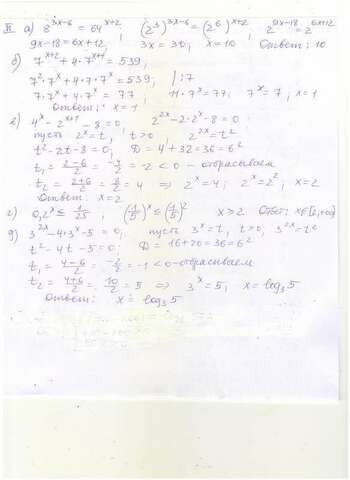 II а) 8^{3x-6} = 64^{x+2}, (2^3)^{3x-6} = (2^6)^{x+2}, 2^{9x-18} = 2^{6x+12}
9x-18=6x+12, 3x=30, x=10 Ответ: 10
б) 7^{x+2} + 4·7^{x+1} = 539,
7^2·7^x + 4·7·7^x = 539; | :7
7·7^x + 4·7^x = 77, 11·7^x = 77, 7^x = 7, x=1
Ответ: x=1
в) 4^x - 2^{x+1} - 8 = 0; 2^{2x} - 2·2^x - 8 = 0
пусть 2^x = t, t>0, 2^{2x} = t^2
t^2 - 2t - 8 = 0; D = 4+32 = 36 = 6^2
t_1 = \frac{2-6}{2} = \frac{-4}{2} = -2 < 0 - отбрасываем
t_2 = \frac{2+6}{2} = \frac{8}{2} = 4 ⇒ 2^x = 4; 2^x = 2^2, x=2
Ответ: x=2
г) 0,2^x ≤ \frac{1}{25}, (\frac{1}{5})^x ≤ (\frac{1}{5})^2 x≥2 Ответ: x∈[2,+∞)
д) 3^{2x} - 4·3^x - 5 = 0, пусть 3^x = t, t>0, 3^{2x} = t^2
t^2 - 4t - 5 = 0; D = 16+20 = 36 = 6^2
t_1 = \frac{4-6}{2} = \frac{-2}{2} = -1 < 0 - отбрасываем
t_2 = \frac{4+6}{2} = \frac{10}{2} = 5 ⇒ 3^x = 5; x = log_3 5
Ответ: x = log_3 5